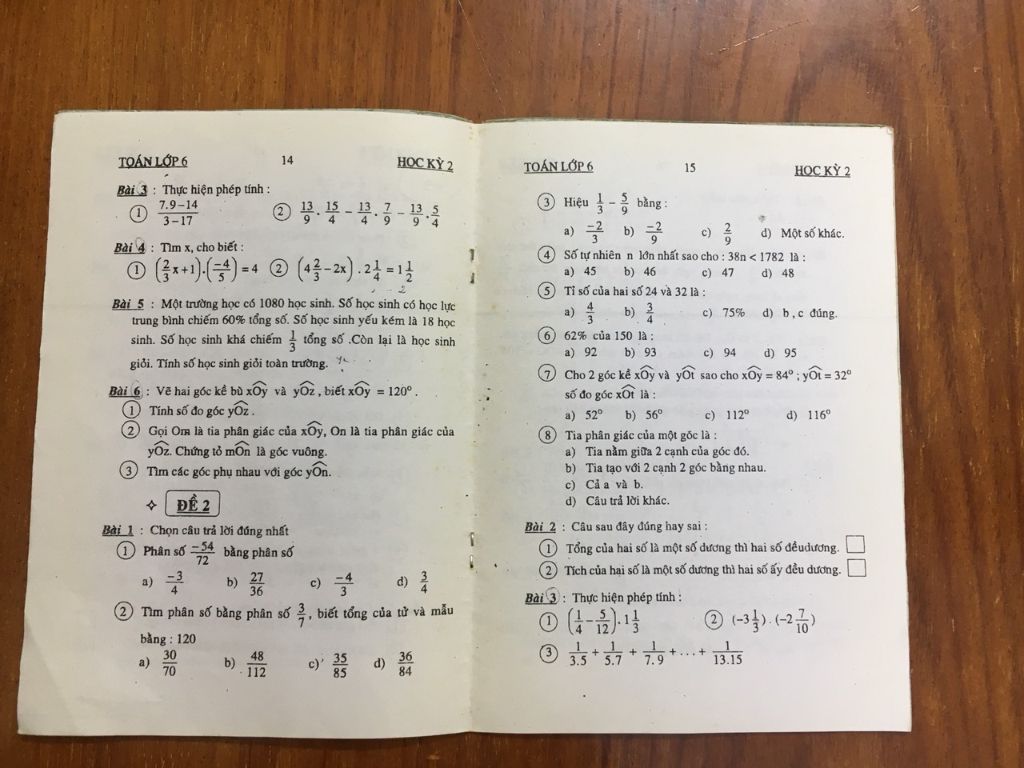 TOÁN LỚP 6 14 HỌC KỲ 2
Bài 3 : Thực hiện phép tính :
① \frac{7.9-14}{3-17} ② \frac{13}{9}.\frac{15}{4} - \frac{13}{4}.\frac{7}{9} - \frac{13}{9}.\frac{5}{4}
Bài 4 : Tìm x, cho biết :
① (\frac{2}{3}x+1).(\frac{-4}{5}) = 4 ② (4\frac{2}{3}-2x).2\frac{1}{4} = 1\frac{1}{2}
Bài 5 : Một trường học có 1080 học sinh. Số học sinh có học lực
trung bình chiếm 60% tổng số. Số học sinh yếu kém là 18 học
sinh. Số học sinh khá chiếm \frac{1}{3} tổng số .Còn lại là học sinh
giỏi. Tính số học sinh giỏi toàn trường.
Bài 6 : Vẽ hai góc kề bù \widehat{xOy} và \widehat{yOz} , biết \widehat{xOy} = 120° .
① Tính số đo góc \widehat{yOz} .
② Gọi Om là tia phân giác của \widehat{xOy}, On là tia phân giác của
\widehat{yOz}. Chứng tỏ \widehat{mOn} là góc vuông.
③ Tìm các góc phụ nhau với góc \widehat{yOn}.
✧ ĐỀ 2
Bài 1 : Chọn câu trả lời đúng nhất
① Phân số \frac{-54}{72} bằng phân số
a) \frac{-3}{4} b) \frac{27}{36} c) \frac{-4}{3} d) \frac{3}{4}
② Tìm phân số bằng phân số \frac{3}{7}, biết tổng của tử và mẫu
bằng : 120
a) \frac{30}{70} b) \frac{48}{112} c) \frac{35}{85} d) \frac{36}{84}
TOÁN LỚP 6 15 HỌC KỲ 2
③ Hiệu \frac{1}{3} - \frac{5}{9} bằng :
a) \frac{-2}{3} b) \frac{-2}{9} c) \frac{2}{9} d) Một số khác.
④ Số tự nhiên n lớn nhất sao cho : 38n < 1782 là :
a) 45 b) 46 c) 47 d) 48
⑤ Tỉ số của hai số 24 và 32 là :
a) \frac{4}{3} b) \frac{3}{4} c) 75% d) b , c đúng.
⑥ 62% của 150 là :
a) 92 b) 93 c) 94 d) 95
⑦ Cho 2 góc kề \widehat{xOy} và \widehat{yOt} sao cho \widehat{xOy} = 84° ; \widehat{yOt} = 32°
số đo góc \widehat{xOt} là :
a) 52° b) 56° c) 112° d) 116°
⑧ Tia phân giác của một góc là :
a) Tia nằm giữa 2 cạnh của góc đó.
b) Tia tạo với 2 cạnh 2 góc bằng nhau.
c) Cả a và b.
d) Câu trả lời khác.
Bài 2 : Câu sau đây đúng hay sai :
① Tổng của hai số là một số dương thì hai số đềudương. □
② Tích của hai số là một số dương thì hai số ấy đều dương. □
Bài 3 : Thực hiện phép tính :
① (\frac{1}{4} - \frac{5}{12}).1\frac{1}{3} ② (-3\frac{1}{3}) . (-2\frac{7}{10})
③ \frac{1}{3.5} + \frac{1}{5.7} + \frac{1}{7.9} + . . . + \frac{1}{13.15}